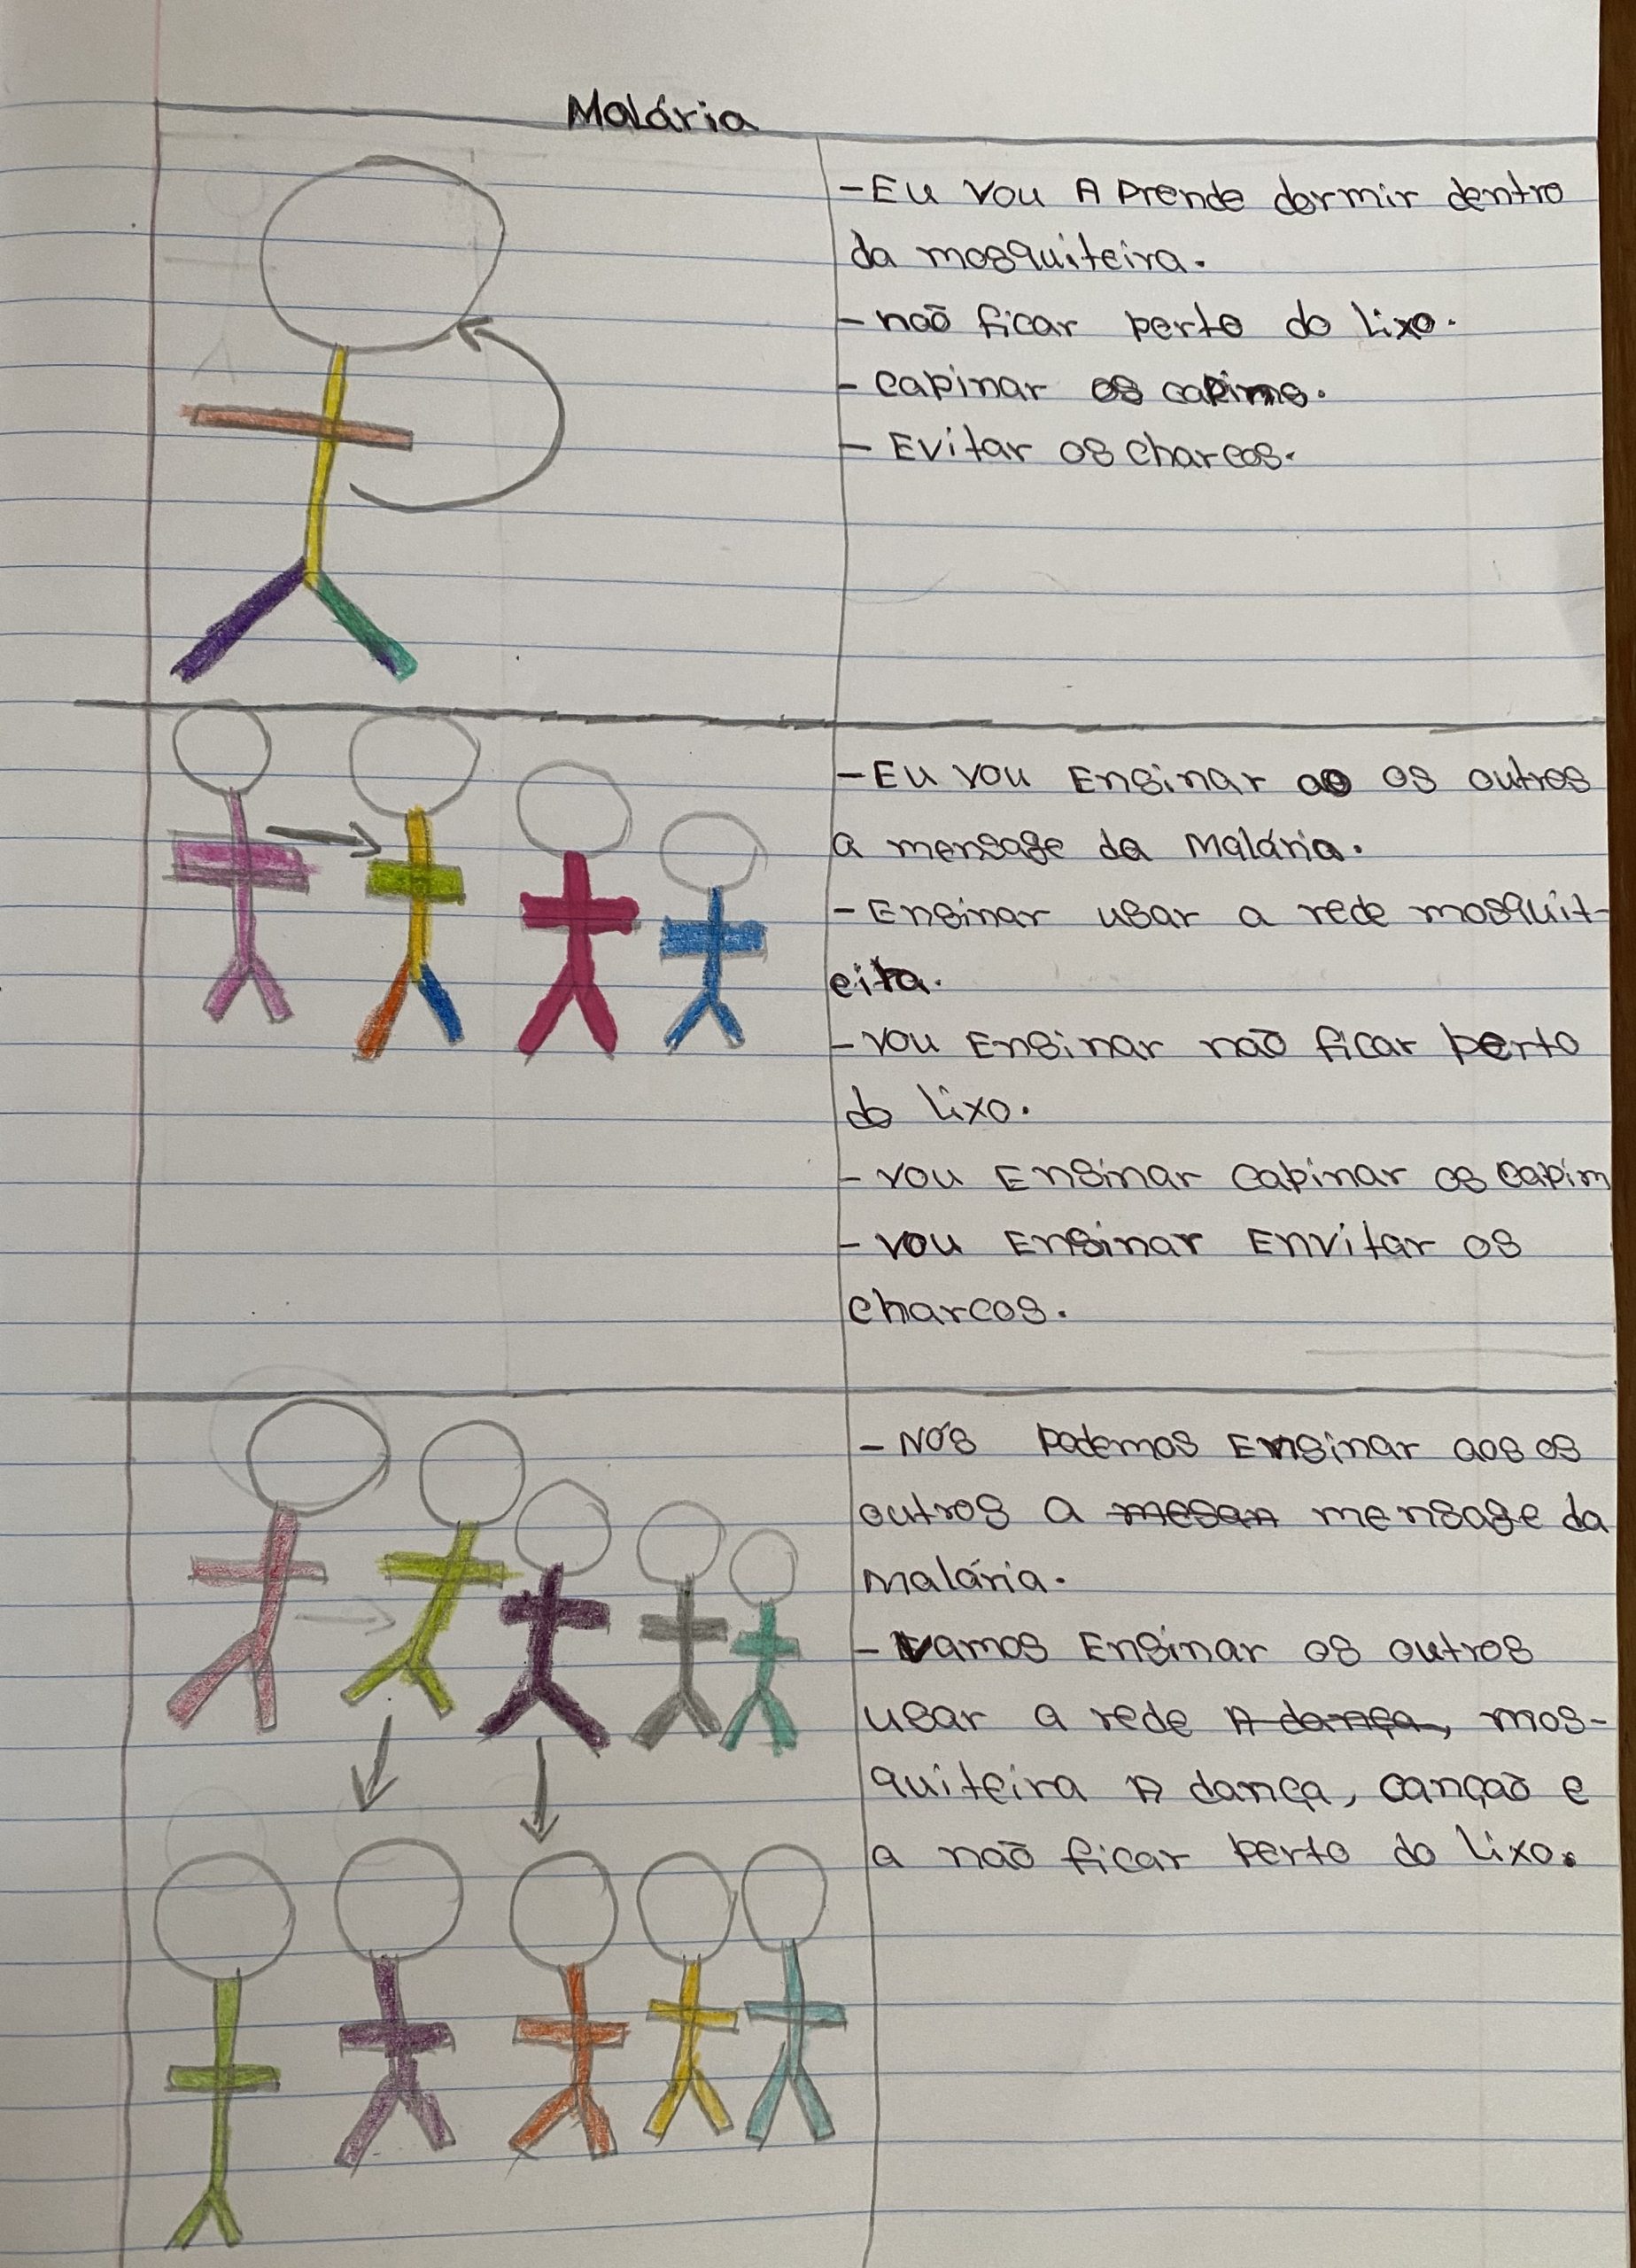 Malária
- Eu vou A Prende dormir dentro
da mosquiteira.
- não ficar perto do lixo.
- capinar os capins.
- Evitar os charcos.
- Eu vou Ensinar ao os outros
a mensage da Malária.
- Ensinar usar a rede mosquit-
eira.
- vou Ensinar não ficar perto
do lixo.
- vou Ensinar capinar os capim
- vou Ensinar Envitar os
charcos.
- Nós Podemos Ensinar aos os
outros a mesan mensage da
malária.
- Vamos Ensinar os outros
usar a rede A dança, mos-
quiteira A dança, canção e
a não ficar perto do lixo.